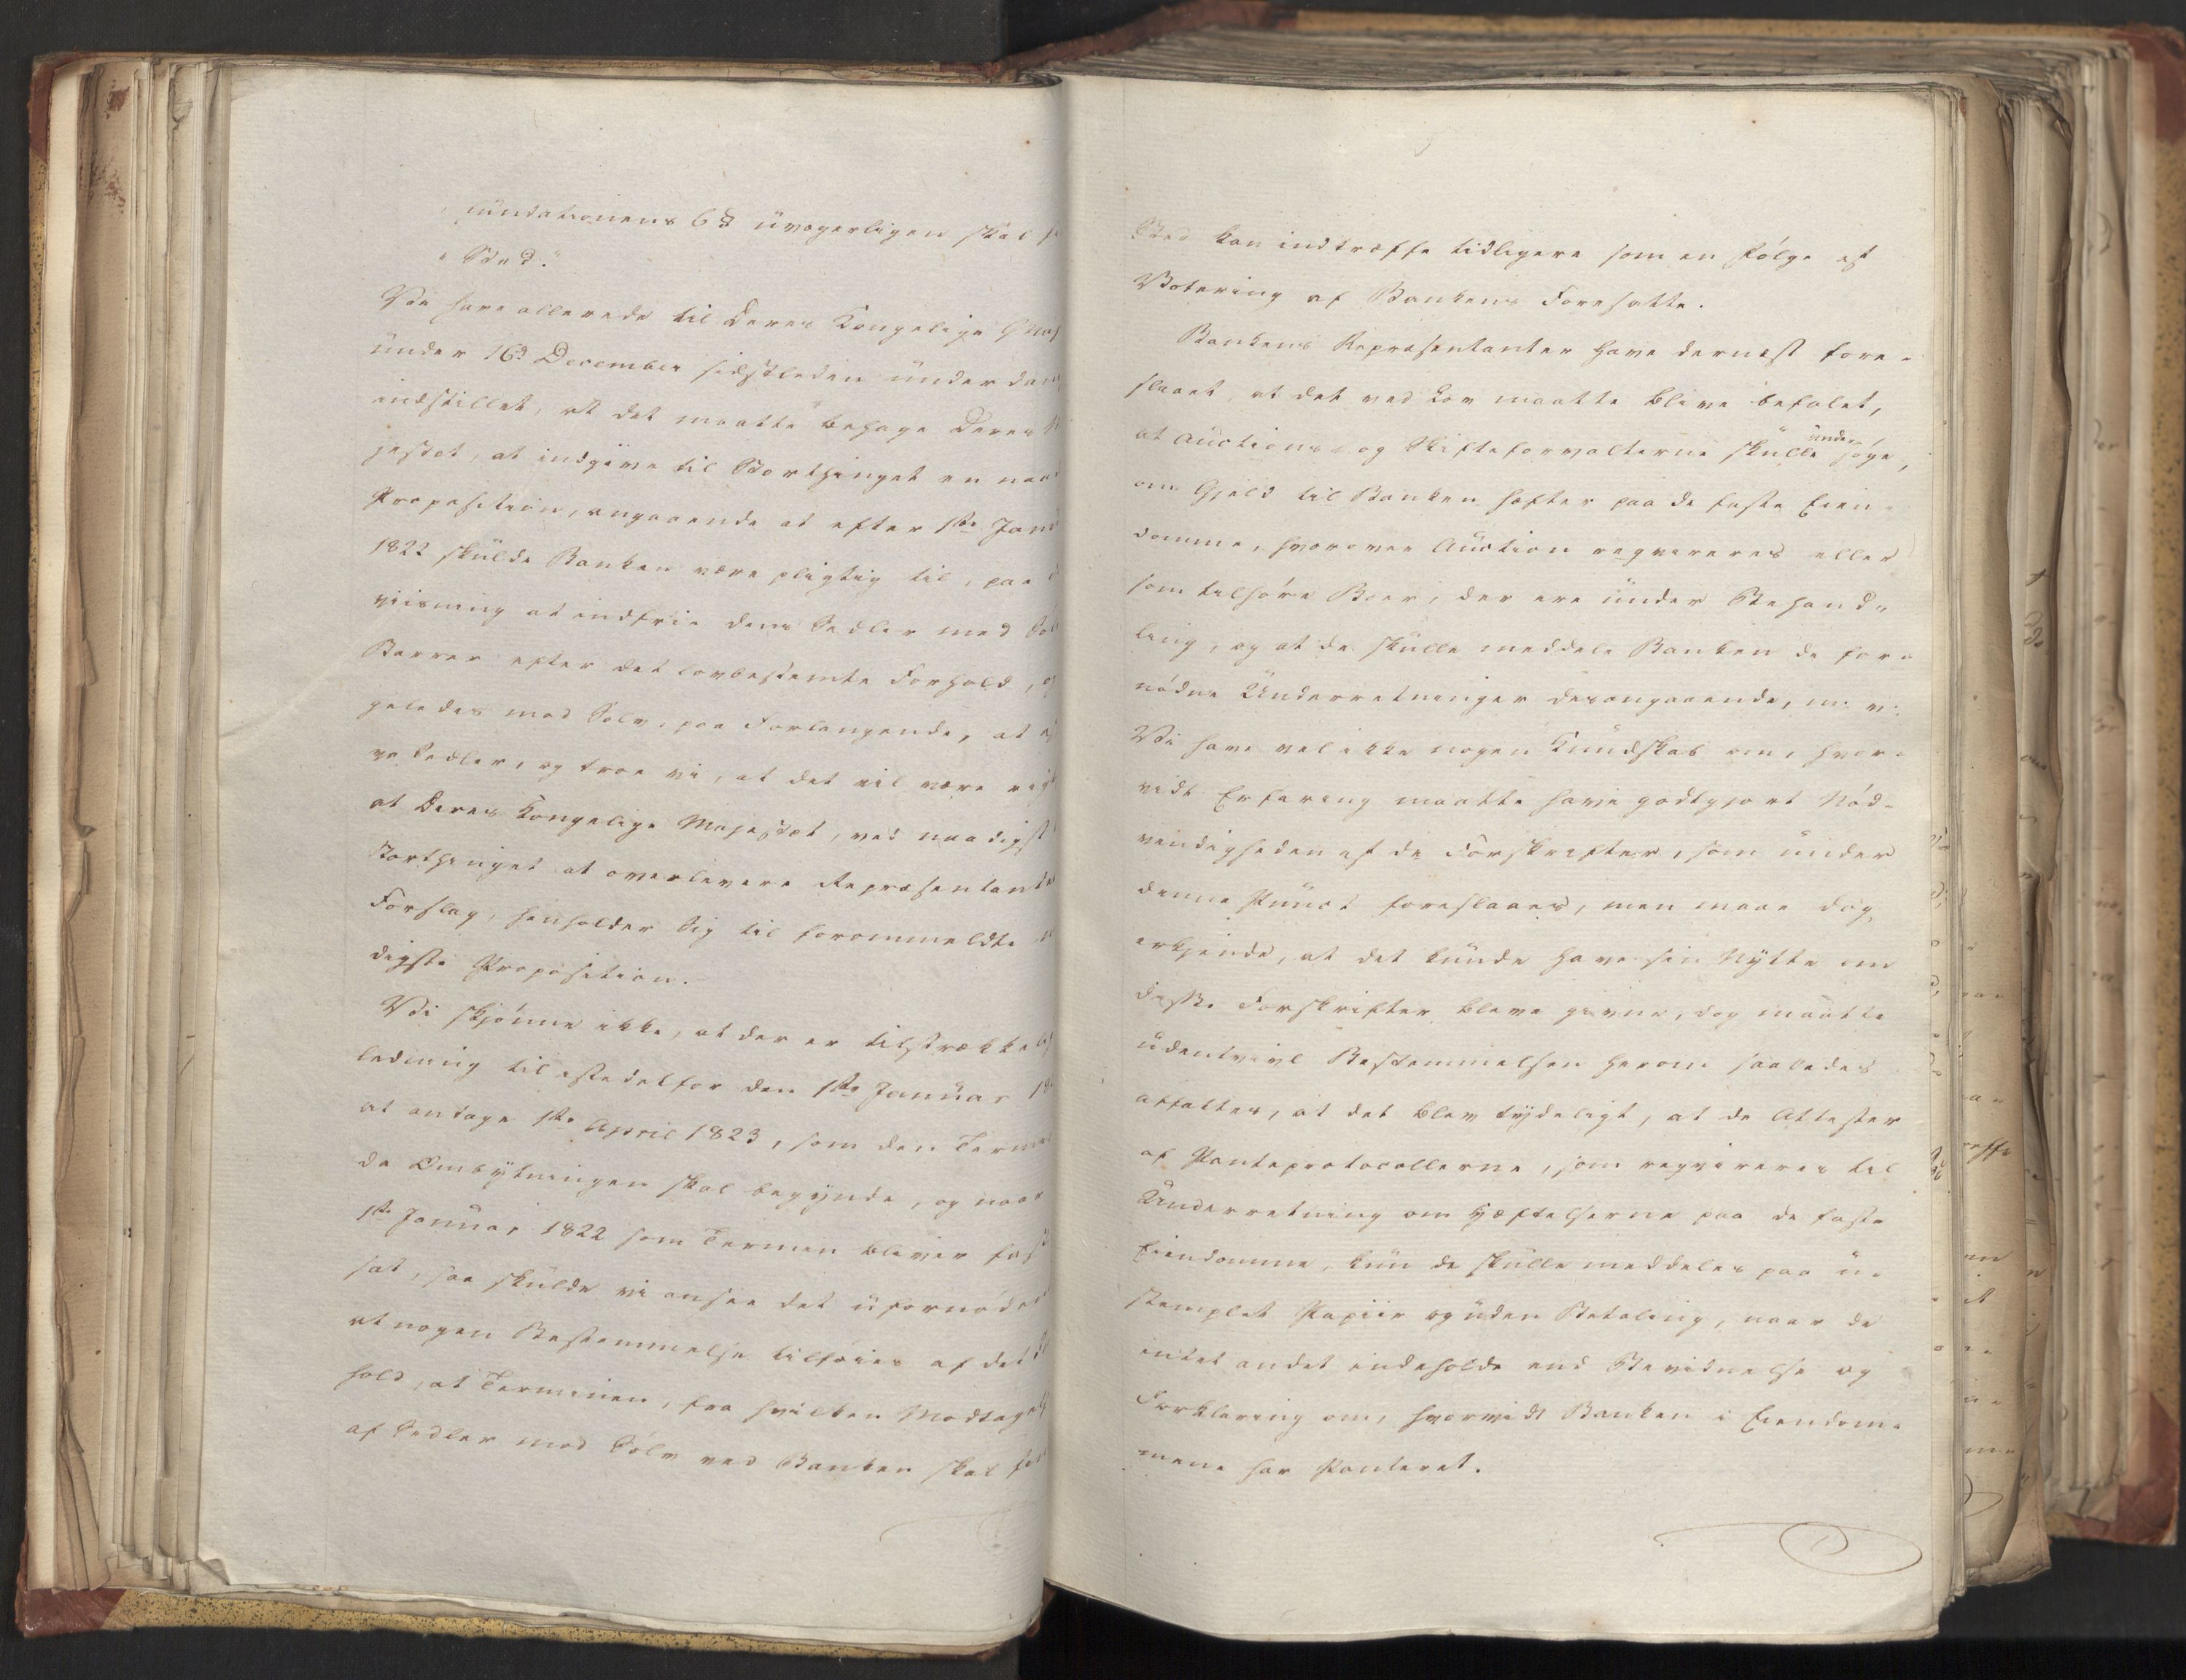 fundationens 6 § uvægerligen skal
"Sted."
Vi have allerede til Deres Kongelige Maj
under 16d December sidstleden underda
indstillet, at det maatte behage Deres
jestet, at indgive til Storthinget en naa
Proposition, angaaende at efter 1ste Jan
1822 skulde Banken være pligtig til, paa
viisning at indfrie dens Sedler med Söl
Barrer efter det lovbestemte Forhold, og
geledes mod Sølv, paa Forlangende, at
ve Sedler, og troe vi, at det vil være rig
at Deres Kongelige Majestæt, ved naadigst
Storthinget at overlevere Repræsentante
Forslag, henholder Sig til forommeldte
digste Proposition.
Vi skjönne ikke, at der er tilstrækkelig
ledning til istedetfor den 1ste Januar 18
at antage 1ste April 1823, som den Termin
da Ombytningen skal begynde, og naar
1ste Januar 1822 som Termin bliver fast
sat, saa skulde vi ansee det ufornödent
at nogen Bestemmelse tilföies af det
hold, at Terminen, fra hvilken Modtagel
af Sedler mod Sölv ved Banken skal
Sted kan indtræffe tidligere som en Fölge af
Votering af Bankens Foresatte.
Bankens Repræsentanter have dernæst fore-
slaaet, at det ved Lov maatte blive befalet,
at Auctions- og Skifteforvalterne skulle undersöge,
om Gjeld til Banken hæfter paa de faste Eien-
domme, hvorover Auction reqvireres eller
som tilhöre Boer, der ere under Behand-
ling, og at de skulle meddele Banken de for-
nödne Underretninger desangaaende, m: v:
Vi have vel ikke nogen Kundskab om, hvor-
vidt Erfaring maatte have godtgjort Nöd-
vendigheden af de Forskrifter, som under
denne Punct foreslaaes, men maae dog
erkjende, at det kunde have sin Nytte om
disse Forskrifter bleve givne, dog maatte
udentvivl Bestemmelsen herom saaledes
affattes, at det blev tydeligt, at de Attester
af Panteprotocollerne, som reqvireres til
Underretning om Hæftelserne paa de faste
Eiendomme, kun de skulle meddeles paa u-
stemplet Papiir og uden Betaling, naar de
intet andet indeholde end Bevidnelse og
Forklaring om, hvorvidt Banken i Eiendom-
mene har Panteret.